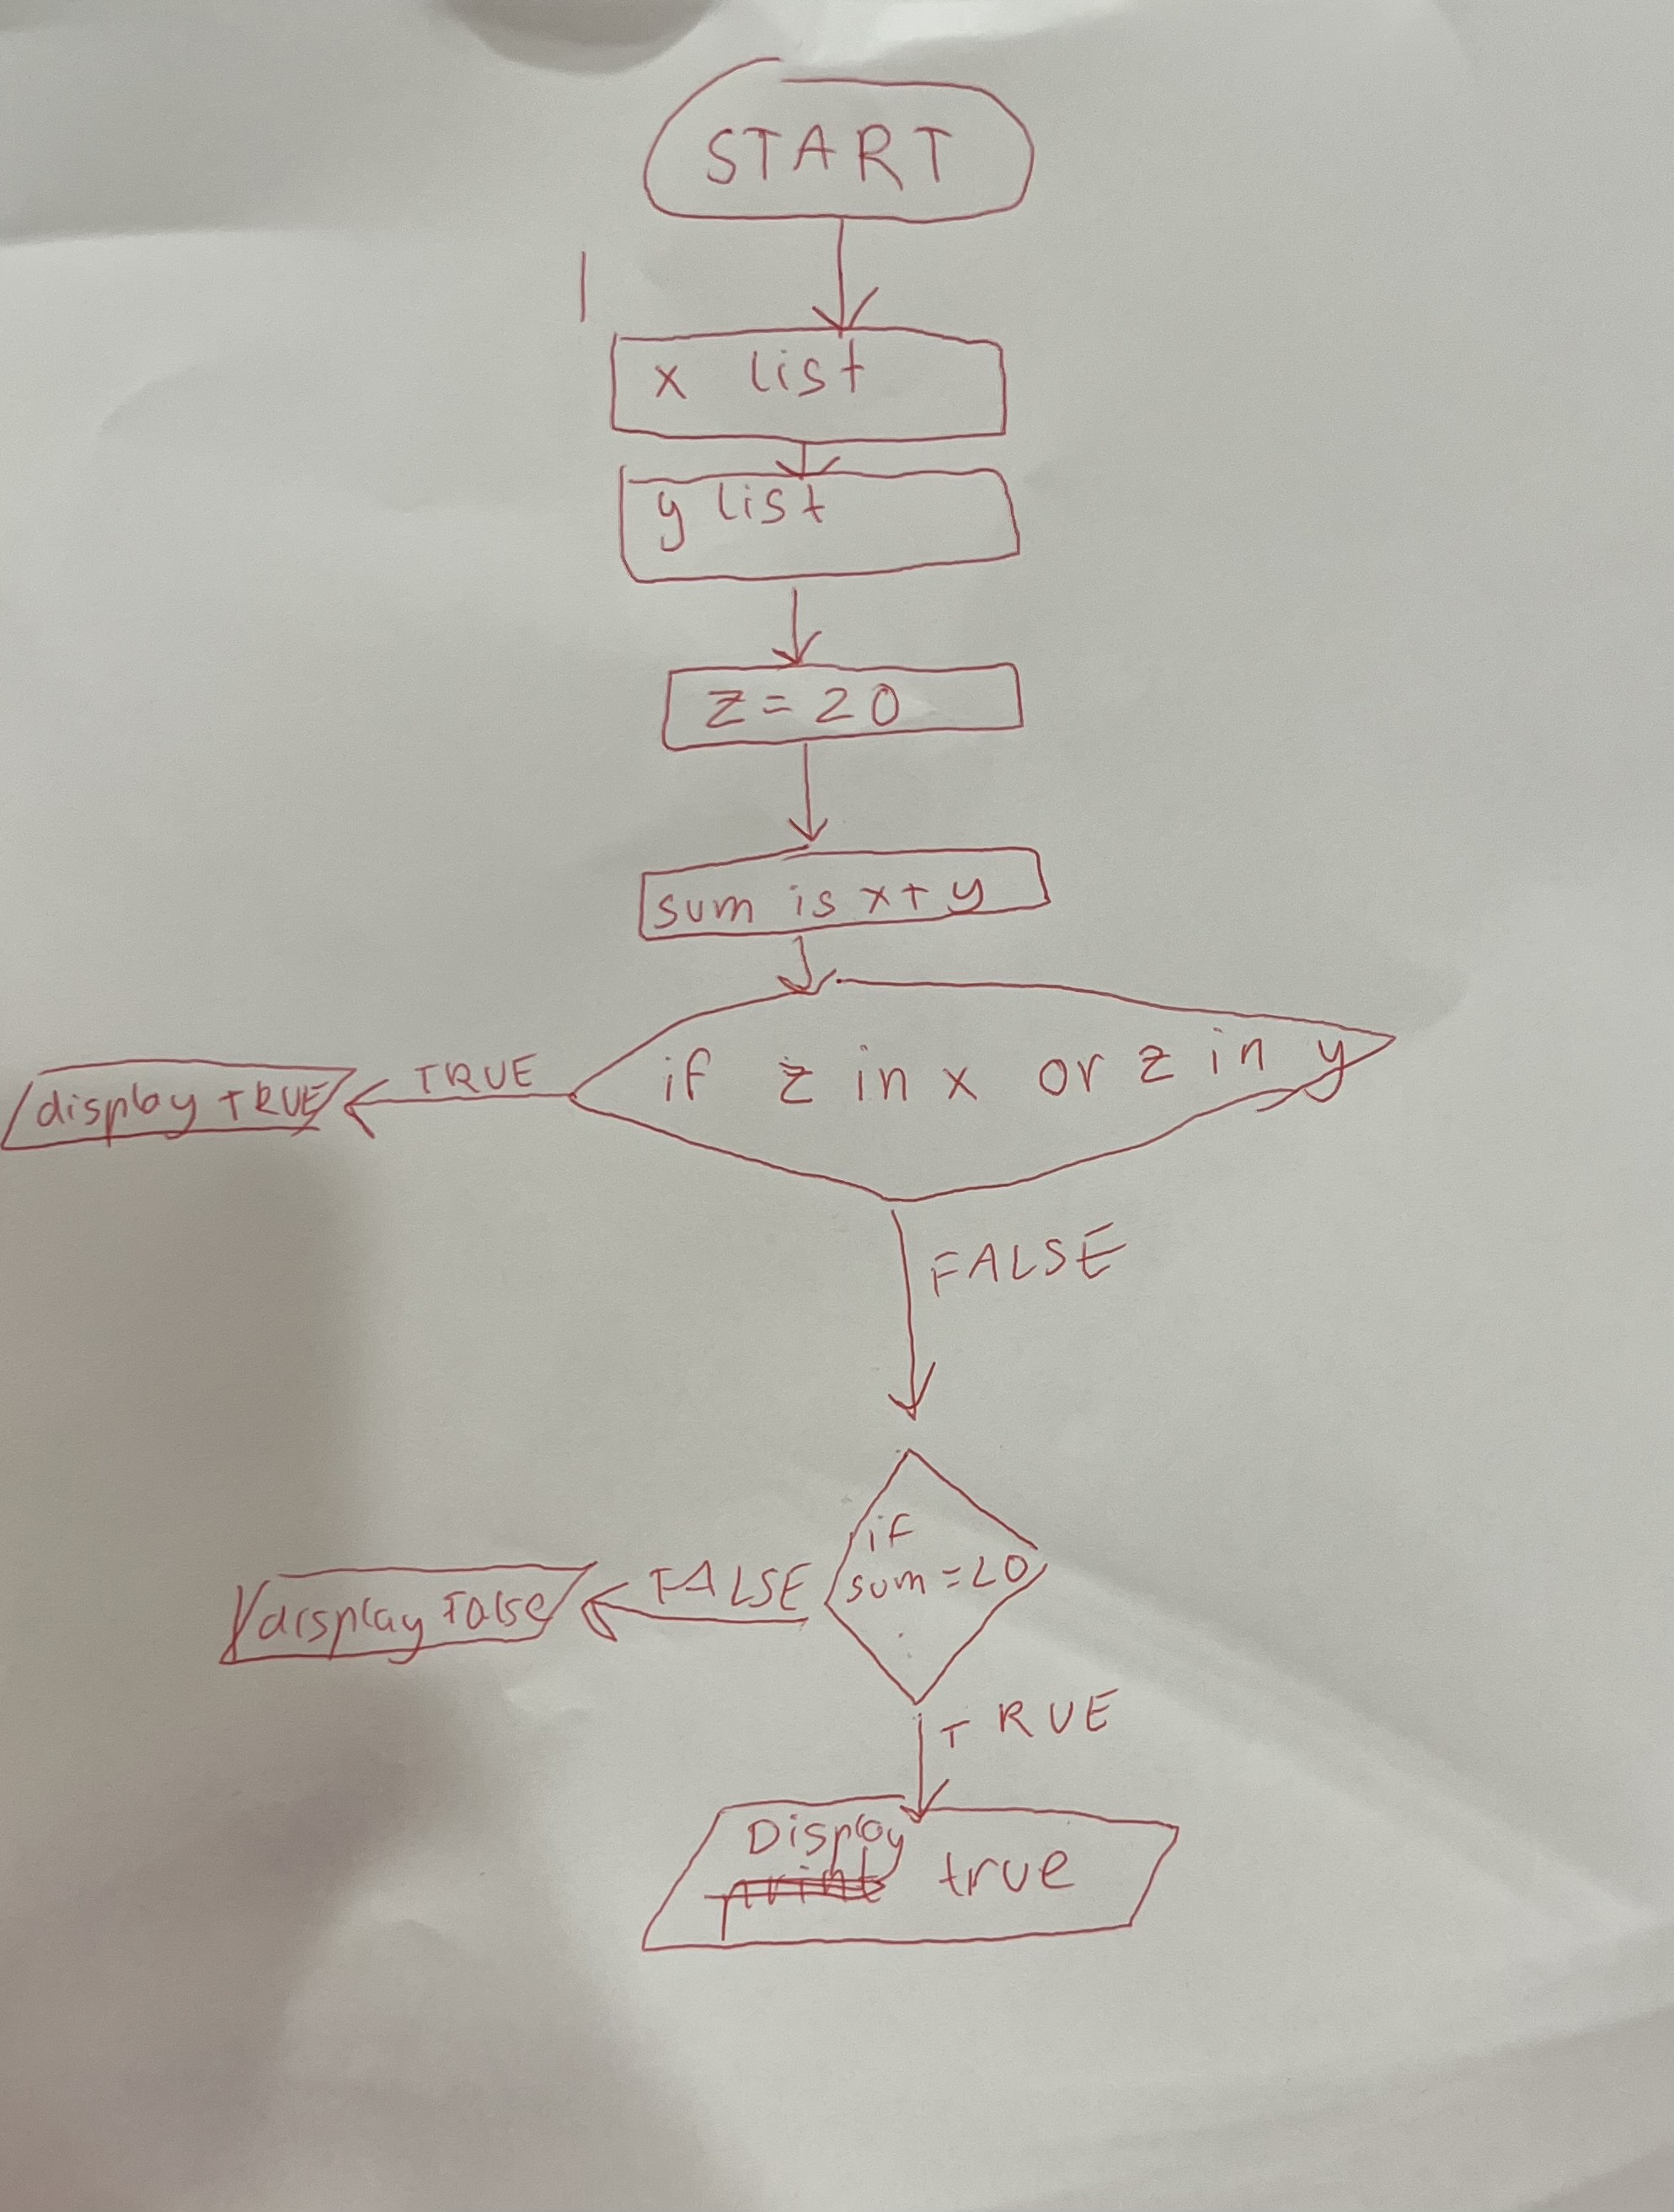 START
x list
y list
z = 20
sum is x + y
if z in x or z in y
TRUE
display TRUE
FALSE
if
sum = 20
FALSE
display False
TRUE
Display
print true